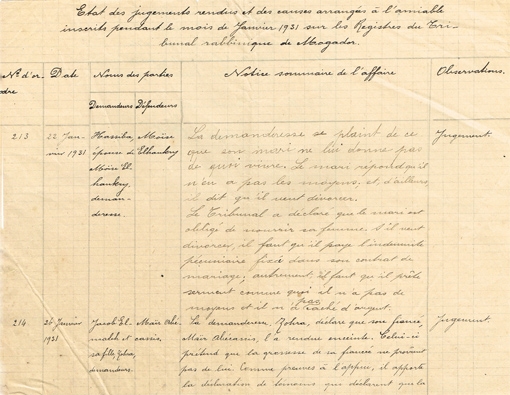 Etat des jugements rendus et des causes arrangées à l'amiable
inscrits pendant le mois de Janvier 1931 sur les Registres du Tri-
bunal rabbinique de Mogador.
N° d'or-
dre
Date
Noms des parties
Demandeurs
Défendeurs
Notice sommaire de l'affaire
Observations.
213
22 Jan-
vier 1931
Hassiba,
épouse d
Moïse El-
hankry
deman-
deresse.
Moïse
Elhankry
La demanderesse se plaint de ce
que son mari ne lui donne pas
de quoi vivre. Le mari répond qu'il
n'en a pas les moyens, et, d'ailleurs,
il dit qu'il veut divorcer.
Le Tribunal a déclaré que le mari est
obligé de nourrir sa femme. S'il veut
divorcer, il faut qu'il paye l'indemnité
pécuniaire fixée dans son contrat de
mariage; autrement, il faut qu'il prête
serment comme quoi il n'a pas de
moyens et il n'a pas caché d'argent.
Jugement.
214
26 Janvier
1931
Jacob El-
maleh et
sa fille, Zohra,
demandeurs.
Maïr Abe-
cassis,
La demanderesse, Zohra, déclare que son fiancé,
Maïr Abecassis, l'a rendue enceinte. Celui-ci
prétend que la grossesse de sa fiancée ne provient
pas de lui. Comme preuves à l'appui, il apporte
la déclaration de témoins qui déclarent que la
Jugement.